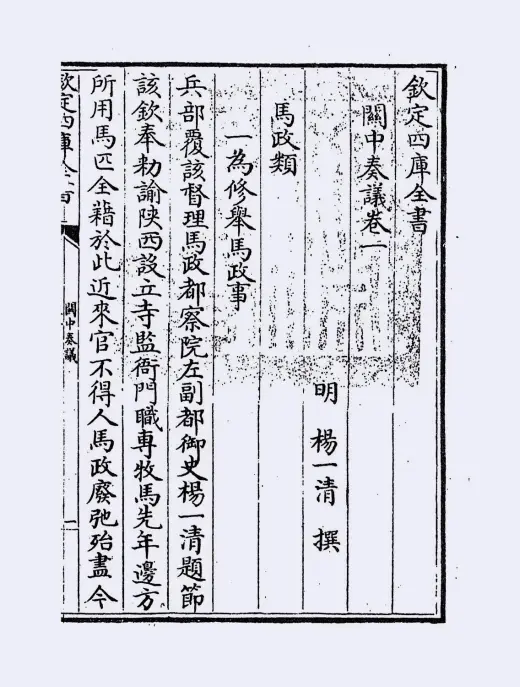 欽定四庫全書
關中奏議卷一
明 楊一清 撰
馬政類
一為修舉馬政事
兵部覆該督理馬政都察院左副都御史楊一清題節
該欽奉勅諭陜西設立寺監衙門職專牧馬先年邊方
所用馬匹全藉於此近來官不得人馬政廢弛殆盡今
欽定四庫全書
關中奏議
一